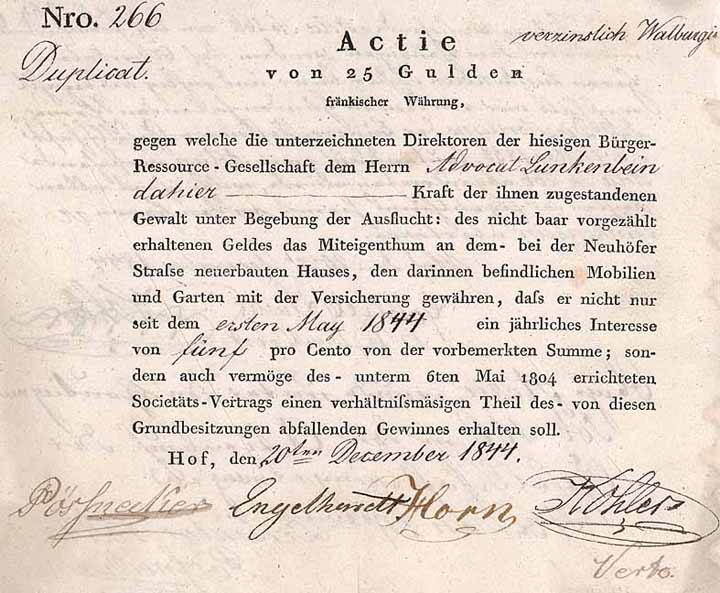 Nro. 266
verzinslich Walburgis
Duplicat.
Actie
von 25 Gulden
fränkischer Währung,
gegen welche die unterzeichneten Direktoren der hiesigen Bürger-
Ressource - Gesellschaft dem Herrn Advocat Lunkenbein
dahier Kraft der ihnen zugestandenen
Gewalt unter Begebung der Ausflucht: des nicht baar vorgezählt
erhaltenen Geldes das Miteigenthum an dem- bei der Neuhöfer
Straſse neuerbauten Hauses, den darinnen befindlichen Mobilien
und Garten mit der Versicherung gewähren, daſs er nicht nur
seit dem ersten May 1844 ein jährliches Interesse
von fünf pro Cento von der vorbemerkten Summe; son-
dern auch vermöge des- unterm 6ten Mai 1804 errichteten
Societäts-Vertrags einen verhältniſsmäsigen Theil des- von diesen
Grundbesitzungen abfallenden Gewinnes erhalten soll.
Hof, den 20ten December 1844.
Engelhardt Horn Köhler
Verto.